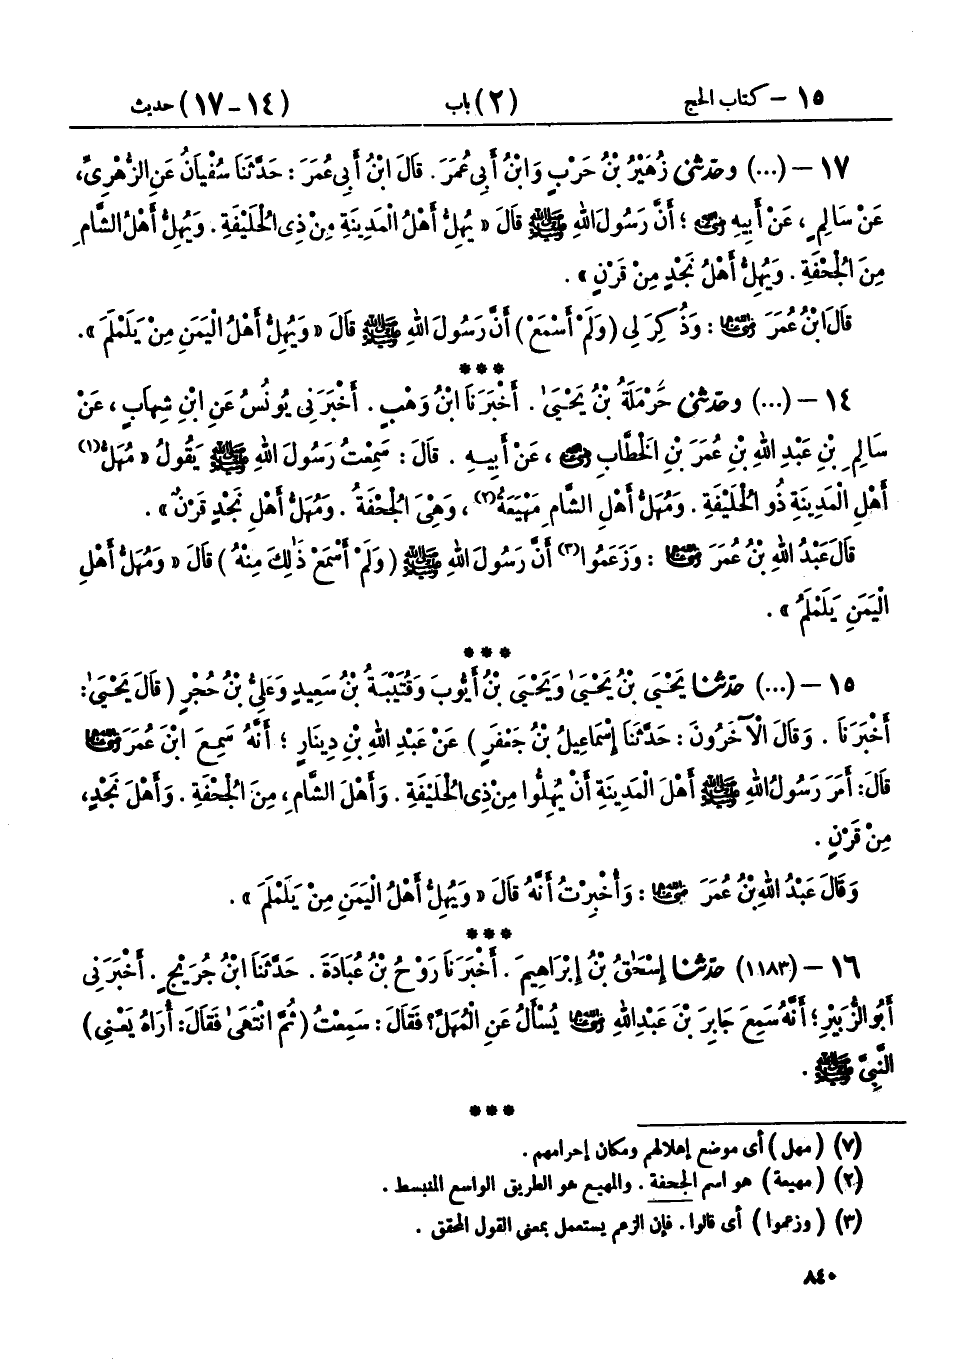 ١٥ – كتاب الحج (٢) باب (١٤-١٧) حديث
١٧ – (...) وحَدَّثَنِي زُهَيْرُ بْنُ حَرْبٍ وَابْنُ أَبِي عُمَرَ . قَالَ ابْنُ أَبِي عُمَرَ : حَدَّثَنَا سُفْيَانُ عَنِ الزُّهْرِيِّ،
عَنْ سَالِمٍ ، عَنْ أَبِيهِ رضي الله عنه ؛ أَنَّ رَسُولَ اللهِ ﷺ قَالَ « يُهِلُّ أَهْلُ الْمَدِينَةِ مِنْ ذِي الْحُلَيْفَةِ . وَيُهِلُّ أَهْلُ الشَّامِ
مِنَ الْجُحْفَةِ . وَيُهِلُّ أَهْلُ نَجْدٍ مِنْ قَرْنٍ » .
قَالَ ابْنُ عُمَرَ رضي الله عنهما : وَذُكِرَ لِي (وَلَمْ أَسْمَعْ) أَنَّ رَسُولَ اللهِ ﷺ قَالَ « وَيُهِلُّ أَهْلُ الْيَمَنِ مِنْ يَلَمْلَمَ ».
***
١٤ – (...) وحَدَّثَنِي حَرْمَلَةُ بْنُ يَحْيَىٰ . أَخْبَرَنَا ابْنُ وَهْبٍ . أَخْبَرَنِي يُونُسُ عَنِ ابْنِ شِهَابٍ ، عَنْ
سَالِمِ بْنِ عَبْدِ اللهِ بْنِ عُمَرَ بْنِ الْخَطَّابِ رضي الله عنه ، عَنْ أَبِيهِ . قَالَ : سَمِعْتُ رَسُولَ اللهِ ﷺ يَقُولُ « مُهَلُّ(١)
أَهْلِ الْمَدِينَةِ ذُو الْحُلَيْفَةِ . وَمُهَلُّ أَهْلِ الشَّامِ مَهْيَعَةُ(٢) ، وَهْيَ الْجُحْفَةُ . وَمُهَلُّ أَهْلِ نَجْدٍ قَرْنٌ » .
قَالَ عَبْدُ اللهِ بْنُ عُمَرَ رضي الله عنهما : وَزَعَمُوا(٣) أَنَّ رَسُولَ اللهِ ﷺ (وَلَمْ أَسْمَعْ ذَٰلِكَ مِنْهُ) قَالَ « وَمُهَلُّ أَهْلِ
الْيَمَنِ يَلَمْلَمُ » .
***
١٥ – (...) حَدَّثَنَا يَحْيَى بْنُ يَحْيَىٰ وَيَحْيَى بْنُ أَيُّوبَ وَقُتَيْبَةُ بْنُ سَعِيدٍ وَعَلِيُّ بْنُ حُجْرٍ (قَالَ يَحْيَىٰ:
أَخْبَرَنَا . وَقَالَ الْآخَرُونَ : حَدَّثَنَا إِسْمَاعِيلُ بْنُ جَعْفَرٍ) عَنْ عَبْدِ اللهِ بْنِ دِينَارٍ ؛ أَنَّهُ سَمِعَ ابْنَ عُمَرَ رضي الله عنهما
قَالَ: أَمَرَ رَسُولُ اللهِ ﷺ أَهْلَ الْمَدِينَةِ أَنْ يُهِلُّوا مِنْ ذِي الْحُلَيْفَةِ . وَأَهْلَ الشَّامِ، مِنَ الْجُحْفَةِ . وَأَهْلَ نَجْدٍ،
مِنْ قَرْنٍ .
وَقَالَ عَبْدُ اللهِ بْنُ عُمَرَ رضي الله عنهما : وَأُخْبِرْتُ أَنَّهُ قَالَ « وَيُهِلُّ أَهْلُ الْيَمَنِ مِنْ يَلَمْلَمَ » .
***
١٦ – (١١٨٣) حَدَّثَنَا إِسْحَٰقُ بْنُ إِبْرَاهِيمَ . أَخْبَرَنَا رَوْحُ بْنُ عُبَادَةَ . حَدَّثَنَا ابْنُ جُرَيْجٍ . أَخْبَرَنِي
أَبُو الزُّبَيْرِ؛ أَنَّهُ سَمِعَ جَابِرَ بْنَ عَبْدِ اللهِ رضي الله عنهما يُسْأَلُ عَنِ الْمُهَلِّ؟ فَقَالَ : سَمِعْتُ (ثُمَّ انْتَهَىٰ فَقَالَ: أُرَاهُ يَعْنِي)
النَّبِيَّ ﷺ .
***
(٧) (مهل) أى موضع إهلالهم ومكان إحرامهم .
(٢) (مهيعة) هو اسم الجحفة . والمهيع هو الطريق الواسع المنبسط .
(٣) (وزعموا) أى قالوا . فإن الزعم يستعمل بمعنى القول المحقق .
٨٤٠